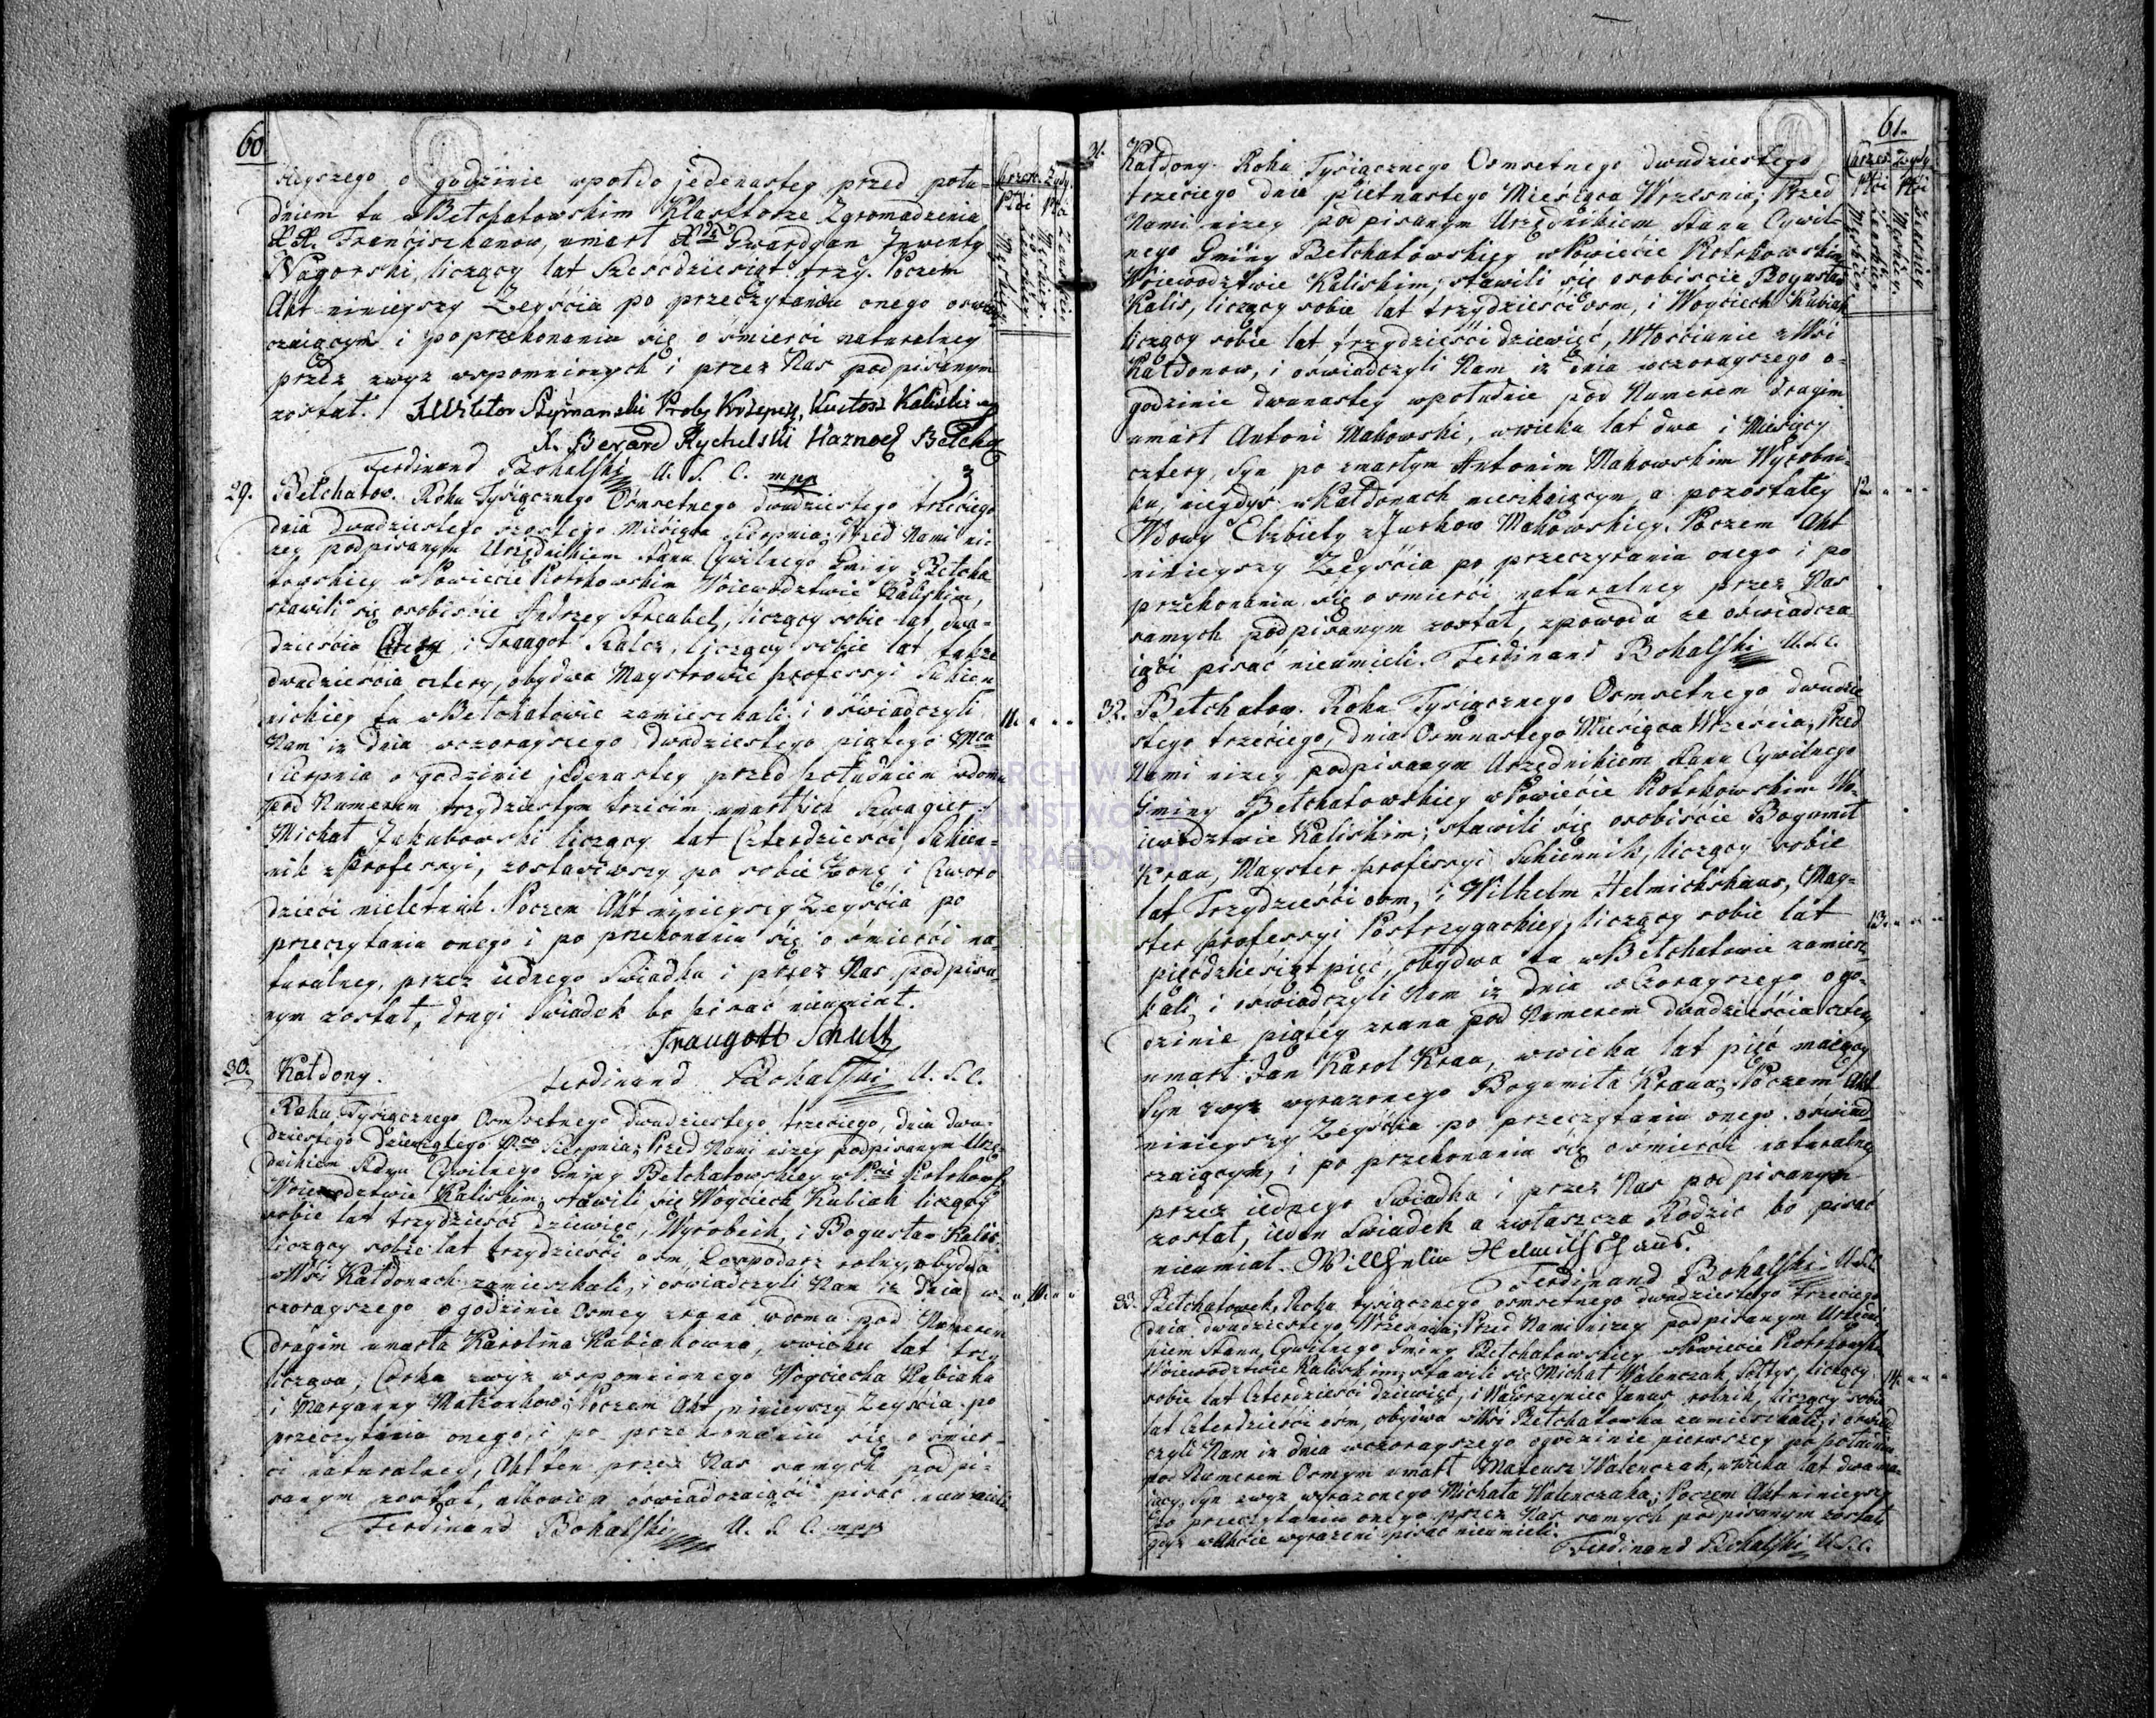 60
siejszego o godzinie wpoł do jedenastej przed połu-
dniem tu w Bełchatowskim Klasztorze Zgromadzenia
XX. Franciszkanow, umarł Xdz Gwardyan Inwenty
Nagorski, liczący lat Sześćdziesiąt trzy. Poczem
Akt niniejszy Zejścia po przeczytaniu onego oswiad-
czaiącym i po przekonaniu się o śmierci naturalney
przez zwyz wspomnionych i przez Nas podpisanym
został.
X. Berard Rychelski Kaznodz Bełcha
Ferdinand Bohalski U. S. C. mpp
29. Bełchatow. Roku Tysiącznego Osmsetnego dwudziestego trzeciego
dnia dwudziestego szostego Miesiąca Sierpnia; Przed Nami ni-
zey podpisanym Urzędnikiem Stanu Cywilnego Gminy Bełcha-
towskiey w Powiecie Piotrkowskim Woiewodztwie Kaliskim,
stawili się osobiście Andrzey Streubel, liczący sobie lat dwa-
dzieścia Cztery i Traugot Szulcz, liczący sobie lat także
dwadzieścia cztery, obydwa Maystrowie professyi Sukien
nickiey tu w Bełchatowie zamieszkali; i oświadczyli
Nam iz dnia wczorayszego dwudziestego piątego Mca
Sierpnia o godzinie jedenastey przed południem w domu
pod Numerem trzydziestym trzecim umarł ich Szwagier
Michał Jakubowski liczący lat Czterdzieści Sukien-
nik z Professyi, zostawiwszy po sobie Zonę i Czworo
dzieci nieletnich. Poczem Akt niniejszy Zejścia po
przeczytaniu onego i po przekonaniu się o smierci na-
turalney, przez iednego Swiadka i przez Nas podpisa-
nym został, drugi Swiadek bo pisać nieumiał.
Traugott Schultz
Ferdinand Bohalski U. S. C.
30. Kałdony.
Roku Tysiącznego Osmsetnego dwudziestego trzeciego, dnia dwu-
dziestego dziewiątego Mca Sierpnia; Przed Nami nizey podpisanym Urzę-
dnikiem Stanu Cywilnego Gminy Bełchatowskiey w Pcie Piotrkows
Woiewodztwie Kaliskim, stawili się Woyciech Kubiak liczący
sobie lat trzydzieści dziewięć, Wyrobnik, i Bogusław Kalis
liczący sobie lat trzydzieści osm, Gospodarz rolny, obydwa
w Wsi Kałdonach zamieszkali, i oświadczyli Nam iz dnia w-
czorayszego o godzinie Osmey zrana w domu pod Numerem
drugim umarła Karolina Kubiakowna, wwieku lat trzy
licząca, Corka zwyz wspomnionego Woyciecha Kubiaka
i Maryanny Poczem Akt niniejszy Zejścia po
przeczytaniu onego, i po przekonaniu się o śmier-
ci naturalney, Akt ten przez Nas samych podpi-
sanym został, albowiem oświadczaiący pisać nieumieli
Ferdinand Bohalski U. S. C. mpp
61.
31. Kałdony. Roku Tysiącznego Osmsetnego dwudziestego
trzeciego dnia Piętnastego Miesiąca Wrzesnia; Przed
Nami nizey podpisanym Urzędnikiem Stanu Cywil-
nego Gminy Bełchatowskiey w Powiecie Piotrkowskim
Woiewodztwie Kaliskim; stawili się osobiście Bogusław
Kalis, liczący sobie lat trzydzieści osm, i Woyciech Kubiak
liczący sobie lat trzydzieści dziewięć, Włościanie z Wsi
Kałdonow, i oświadczyli Nam iz dnia wczorayszego o-
godzinie dwunastey w południe pod Numerem drugim
umarł Antoni Makowski, w wieku lat dwa i Miesięcy
cztery, Syn po zmarłym Antonim Makowskim Wyrobni-
ku, niegdyś w Kałdonach mieszkaiącym, a pozostałey
Wdowy Elzbiety z Makowskiey. Poczem Akt
niniejszy Zejścia po przeczytaniu onego i po
przekonaniu się o smierci naturalney przez Nas
samych podpisanym został, zpowodu ze oświadcza-
iący pisać nieumieli. Ferdinand Bohalski U. S. C.
32. Bełchatow. Roku Tysiącznego Osmsetnego dwudzie-
stego trzeciego, dnia Osmnastego Miesiąca Wrześnią, Przed
Nami nizey podpisanym Urzędnikiem Stanu Cywilnego
Gminy Bełchatowskiey w Powiecie Piotrkowskim Wo-
iewodztwie Kaliskim; stawili się osobiście Bogumił
Krau, Mayster professyi Sukiennik, liczący sobie
lat Trzydzieści osm, i Wilhelm Helmichshaus, May-
ster professyi Postrzygackiey, liczący sobie lat
pięćdziesiąt pięć, obydwa tu w Bełchatowie zamiesz-
kali, i oświadczyli Nam iz dnia wczorayszego o go-
dzinie piątey zrana pod Numerem dwadzieścia cztery
umarł Jan Karol Krau, w wieku lat pięć maiący
Syn zwyz wyrazonego Bogumiła Kraua; Poczem Akt
niniejszy Zejścia po przeczytaniu onego oświad-
czaiącym, i po przekonaniu się o smierci naturalney
przez iednego Swiadka i przez Nas podpisanym
został, ieden Swiadek a zwłaszcza Rodzic bo pisać
nieumiał. Willhelm Helmichshaus.
Ferdinand Bohalski U. S. C.
33. Bełchatowek, Roku tysiącznego osmsetnego dwudziestego Trzeciego
dnia dwudziestego Wrzesnia; Przed Nami nizey podpisanym Urzędni-
kiem Stanu Cywilnego Gminy Bełchatowskiey w Powiecie Piotrkowskim
Woiewodztwie Kaliskim; stawili się Michał Walenczak, Sołtys, liczący
sobie lat Czterdzieści dziewięć, i Wawrzyniec Janus rolnik, liczący sobie
lat Czterdzieści osm, obydwa w Wsi Bełchatowku zamieszkali; i oświad-
czyli Nam iz dnia wczorayszego o godzinie pierwszey po południu
pod Numerem Osmym umarł Mateusz Walenczak, w wieku lat dwa ma-
iący, Syn zwyz wyrazonego Michała Walenczaka; Poczem Akt niniejszy
po przeczytaniu onego przez Nas samych podpisanym został
gdyz w Akcie wyrazeni pisać nieumieli.
Ferdinand Bohalski U. S. C.